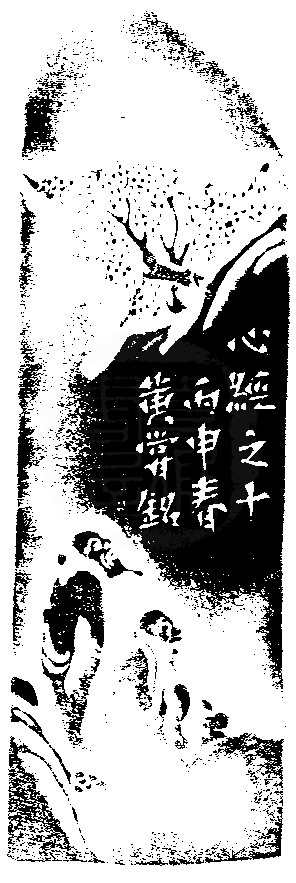 心經之十
丙申春
黃嘗銘